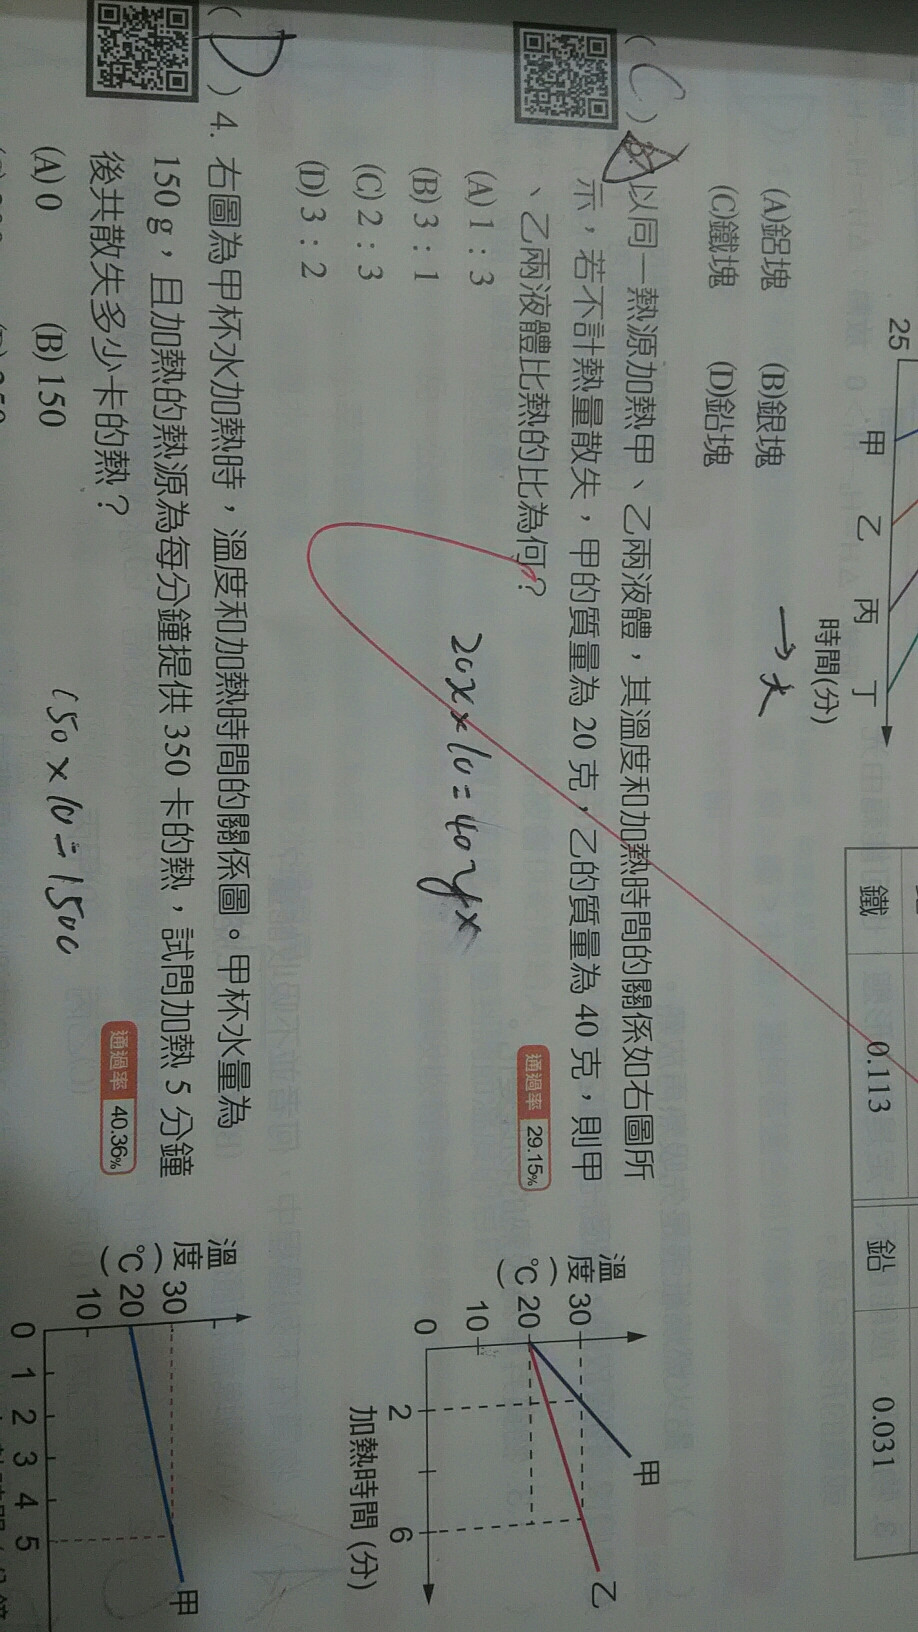 25
甲 乙 丙 丁
時間(分)
(A)鋁塊 (B)銀塊
(C)鐵塊 (D)鉛塊
→大
鐵 0.113 鉛 0.031
(C) 3. 以同一熱源加熱甲、乙兩液體，其溫度和加熱時間的關係如右圖所
示，若不計熱量散失，甲的質量為 20 克，乙的質量為 40 克，則甲
、乙兩液體比熱的比為何？
通過率 29.15%
(A) 1：3
(B) 3：1
(C) 2：3
(D) 3：2
20x×10=40y×
溫度(℃)
30
20
10
0
2 6
加熱時間(分)
甲
乙
(D) 4. 右圖為甲杯水加熱時，溫度和加熱時間的關係圖。甲杯水量為
150 g，且加熱的熱源為每分鐘提供 350 卡的熱，試問加熱 5 分鐘
後共散失多少卡的熱？
通過率 40.36%
(A) 0 (B) 150
150×10=1500
溫度(℃)
30
20
10
0 1 2 3 4 5
甲